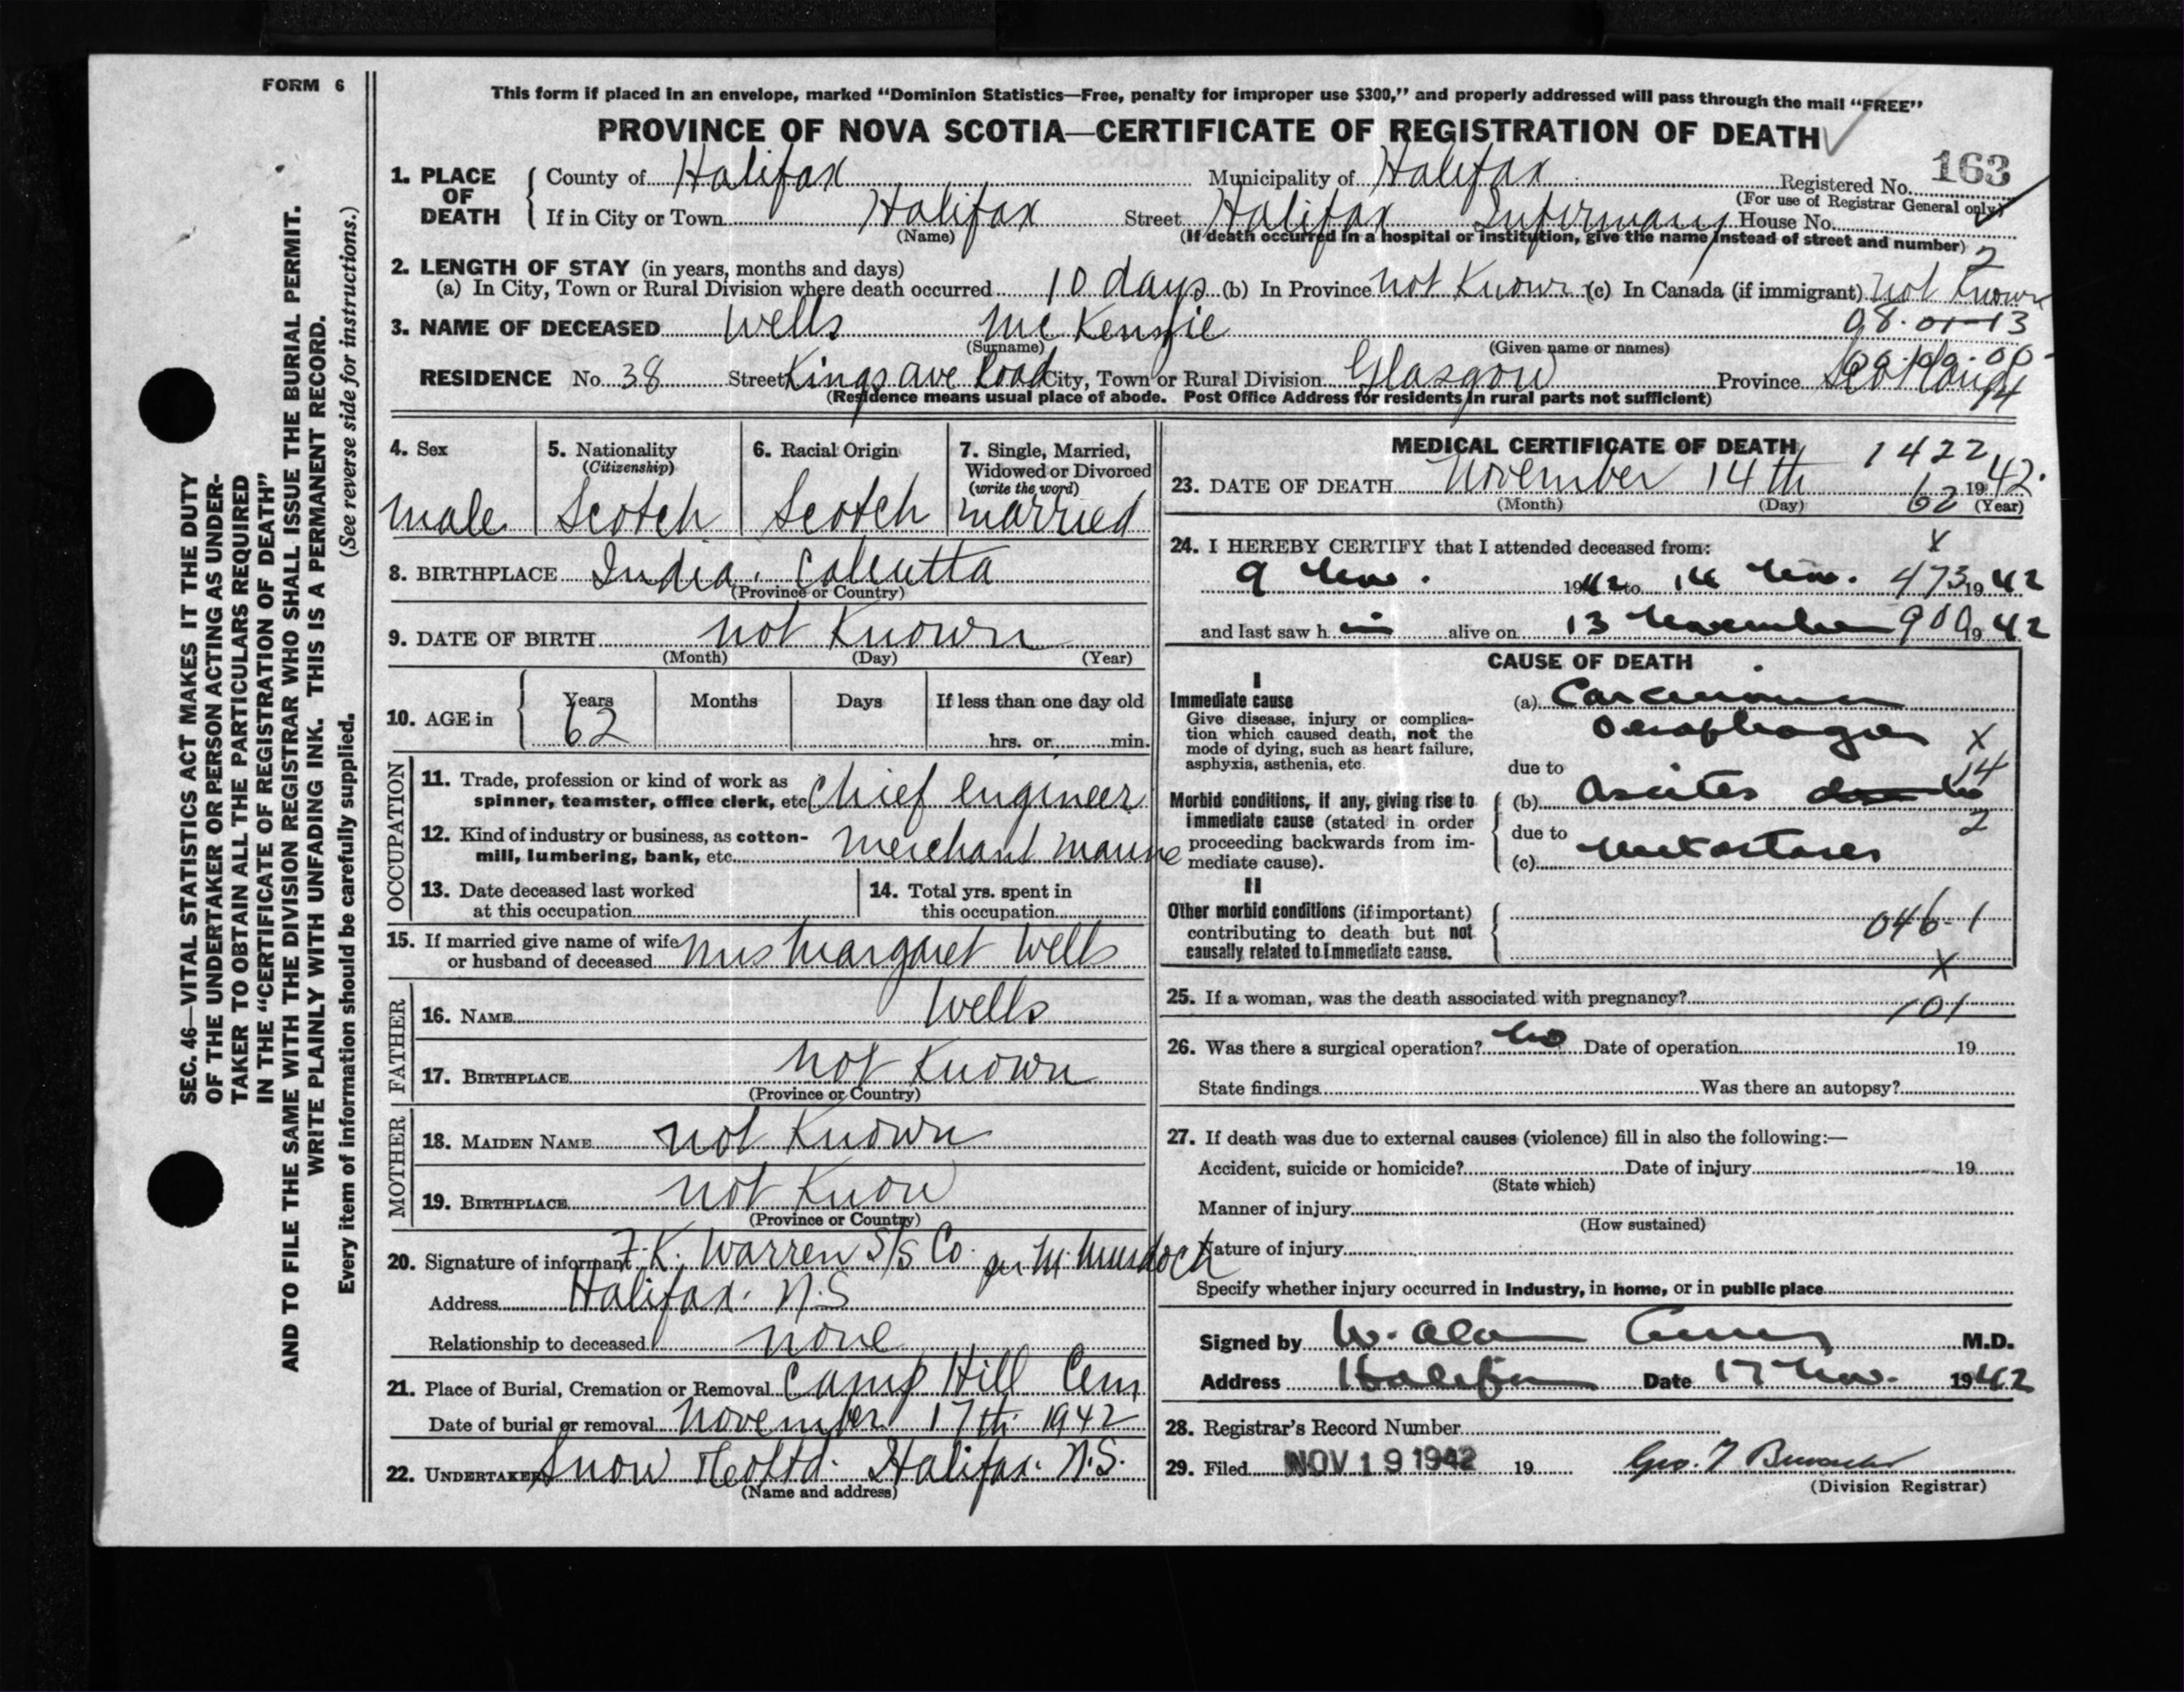 FORM 6
This form if placed in an envelope, marked “Dominion Statistics—Free, penalty for improper use $300,” and properly addressed will pass through the mail “FREE”
PROVINCE OF NOVA SCOTIA—CERTIFICATE OF REGISTRATION OF DEATH
163
1. PLACE OF DEATH County of Halifax Municipality of Halifax Registered No.
(For use of Registrar General only)
If in City or Town Halifax Street Halifax Infirmary House No.
(Name) (If death occurred in a hospital or institution, give the name instead of street and number)
2
2. LENGTH OF STAY (in years, months and days)
(a) In City, Town or Rural Division where death occurred 10 days (b) In Province not Known (c) In Canada (if immigrant) not Known
98-01-13
3. NAME OF DECEASED Wells McKenzie
(Surname) (Given name or names)
RESIDENCE No. 38 Street Kings ave Road City, Town or Rural Division Glasgow Province Scotland
(Residence means usual place of abode. Post Office Address for residents in rural parts not sufficient)
4. Sex
male
5. Nationality
(Citizenship)
Scotch
6. Racial Origin
Scotch
7. Single, Married, Widowed or Divorced
(write the word)
married
8. BIRTHPLACE India. Calcutta
(Province or Country)
9. DATE OF BIRTH not Known
(Month) (Day) (Year)
10. AGE in Years Months Days If less than one day old
62 hrs. or min.
OCCUPATION
11. Trade, profession or kind of work as
spinner, teamster, office clerk, etc. Chief engineer
12. Kind of industry or business, as cotton-
mill, lumbering, bank, etc. Merchant marine
13. Date deceased last worked
at this occupation
14. Total yrs. spent in
this occupation
15. If married give name of wife
or husband of deceased Mrs Margaret Wells
FATHER
16. NAME Wells
17. BIRTHPLACE not Known
(Province or Country)
MOTHER
18. MAIDEN NAME not Known
19. BIRTHPLACE not Know
(Province or Country)
20. Signature of informant F. K. Warren S/S Co. per M. Murdoch
Address Halifax. N.S
Relationship to deceased none
21. Place of Burial, Cremation or Removal Camp Hill Cem
Date of burial or removal November 17th 1942
22. UNDERTAKER Snow & Co Ltd. Halifax. N.S.
(Name and address)
MEDICAL CERTIFICATE OF DEATH
1422
23. DATE OF DEATH November 14th 1942.
(Month) (Day) (Year)
62
24. I HEREBY CERTIFY that I attended deceased from:
X
9 Nov. 1942 to 14 Nov. 1942
473
and last saw h im alive on 13 November 1942
900
CAUSE OF DEATH
I
Immediate cause
Give disease, injury or complica-
tion which caused death, not the
mode of dying, such as heart failure,
asphyxia, asthenia, etc.
(a) Carcinoma
Oesophagus
X
14
due to
Morbid conditions, if any, giving rise to
immediate cause (stated in order
proceeding backwards from im-
mediate cause).
(b) Ascites
2
due to
(c) metastases
II
Other morbid conditions (if important)
contributing to death but not
causally related to immediate cause.
046-1
X
25. If a woman, was the death associated with pregnancy?
101
26. Was there a surgical operation? No Date of operation 19
State findings Was there an autopsy?
27. If death was due to external causes (violence) fill in also the following:—
Accident, suicide or homicide? Date of injury 19
(State which)
Manner of injury
(How sustained)
Nature of injury
Specify whether injury occurred in Industry, in home, or in public place
Signed by W. Alan M.D.
Address Halifax Date 17 Nov. 1942
28. Registrar's Record Number
29. Filed NOV 19 1942 19
Geo. F.
(Division Registrar)
SEC. 46—VITAL STATISTICS ACT MAKES IT THE DUTY
OF THE UNDERTAKER OR PERSON ACTING AS UNDER-
TAKER TO OBTAIN ALL THE PARTICULARS REQUIRED
IN THE “CERTIFICATE OF REGISTRATION OF DEATH”
AND TO FILE THE SAME WITH THE DIVISION REGISTRAR WHO SHALL ISSUE THE BURIAL PERMIT.
WRITE PLAINLY WITH UNFADING INK. THIS IS A PERMANENT RECORD.
Every item of information should be carefully supplied. (See reverse side for instructions.)